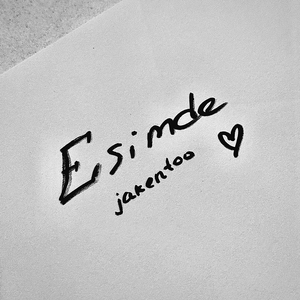 Esimde
jakentoo